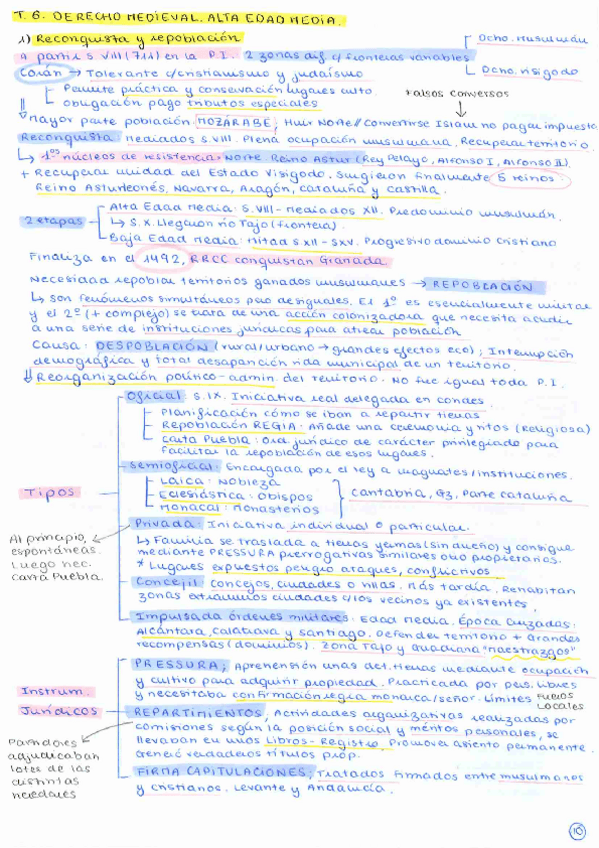 T. 6. DERECHO MEDIEVAL. ALTA EDAD MEDIA.
1) Reconquista y repoblación
A partir s. VIII (711) en la P.I. 2 zonas dif c/ fronteras variables
Dcho. musulmán
Dcho. visigodo
Corán → Tolerante c/ cristianismo y judaísmo
Permite práctica y conservación lugares culto
obligación pago tributos especiales
Falsos conversos
Mayor parte población MOZÁRABE; Huir Norte // Convertirse Islam no pagar impuesto
Reconquista: mediados s. VIII. Plena ocupación musulmana. Recuperar territorio.
↳ 1os núcleos de resistencia = Norte. Reino Astur (Rey Pelayo, Alfonso I, Alfonso II).
+ Recuperar unidad del Estado Visigodo. Surgieron finalmente 5 reinos.
Reino Asturleonés, Navarra, Aragón, Cataluña y Castilla.
2 etapas
Alta Edad Media: s. VIII - mediados XII. Predominio musulmán.
↳ s. X. llegaron río Tajo (frontera).
Baja Edad Media: mitad s XII - s XV. Progresivo dominio cristiano
Finaliza en el 1492, RRCC conquistan Granada.
Necesidad repoblar territorios ganados musulmanes → REPOBLACIÓN
↳ son fenómenos simultáneos pero desiguales. El 1º es esencialmente militar
y el 2º (+ complejo) se trata de una acción colonizadora que necesita acudir
a una serie de instituciones jurídicas para atraer población
Causa: DESPOBLACIÓN (rural/urbano → grandes efectos eco); Interrupción
demográfica y total desaparición vida municipal de un territorio.
⇓ Reorganización político-admin. del territorio. No fue igual toda P.I.
Tipos
Oficial: s. IX. Iniciativa real delegada en condes
Planificación cómo se iban a repartir tierras
Repoblación REGIA: Añade una ceremonia y ritos (religiosa)
Carta Puebla: Ord. jurídico de carácter privilegiado para
facilitar la repoblación de esos lugares.
Semioficial: Encargada por el rey a magnates/instituciones.
Laica: Nobleza
Eclesiástica: Obispos
Monacal: Monasterios
Cantabria, Parte Cataluña
Privada: Iniciativa individual o particular.
Al principio,
espontáneas.
Luego nec.
carta Puebla.
↳ Familia se traslada a tierras yermas (sin dueño) y consigue
mediante PRESSURA prerrogativas similares otro propietarios.
* Lugares expuestos peligro ataques, conflictivos
Concejil: Concejos, ciudades o villas. Más tardía. Rehabitan
zonas extramuros ciudades c/ los vecinos ya existentes.
Impulsada órdenes militares: Edad Media. Época Cruzadas:
Alcántara, Calatrava y Santiago. Defender territorio + Grandes
recompensas (dominios). Zona Tajo y Guadiana "maestrazgos"
Instrum.
Jurídicos
PRESSURA; Aprehensión unas det. tierras mediante ocupación
y cultivo para adquirir propiedad. Practicada por pers. libres
y necesitaba confirmación regia monarca/señor. Límites Fueros
Locales
REPARTIMIENTOS; Actividades organizativas realizadas por
comisiones según la posición social y méritos personales, se
llevaban en unos Libros-Registro. Promover asiento permanente.
Generó verdaderos títulos prop.
Partidores
adjudicaban
lotes de las
distintas
heredades
FIRMA CAPITULACIONES; Tratados firmados entre musulmanes
y cristianos. Levante y Andalucía.
10